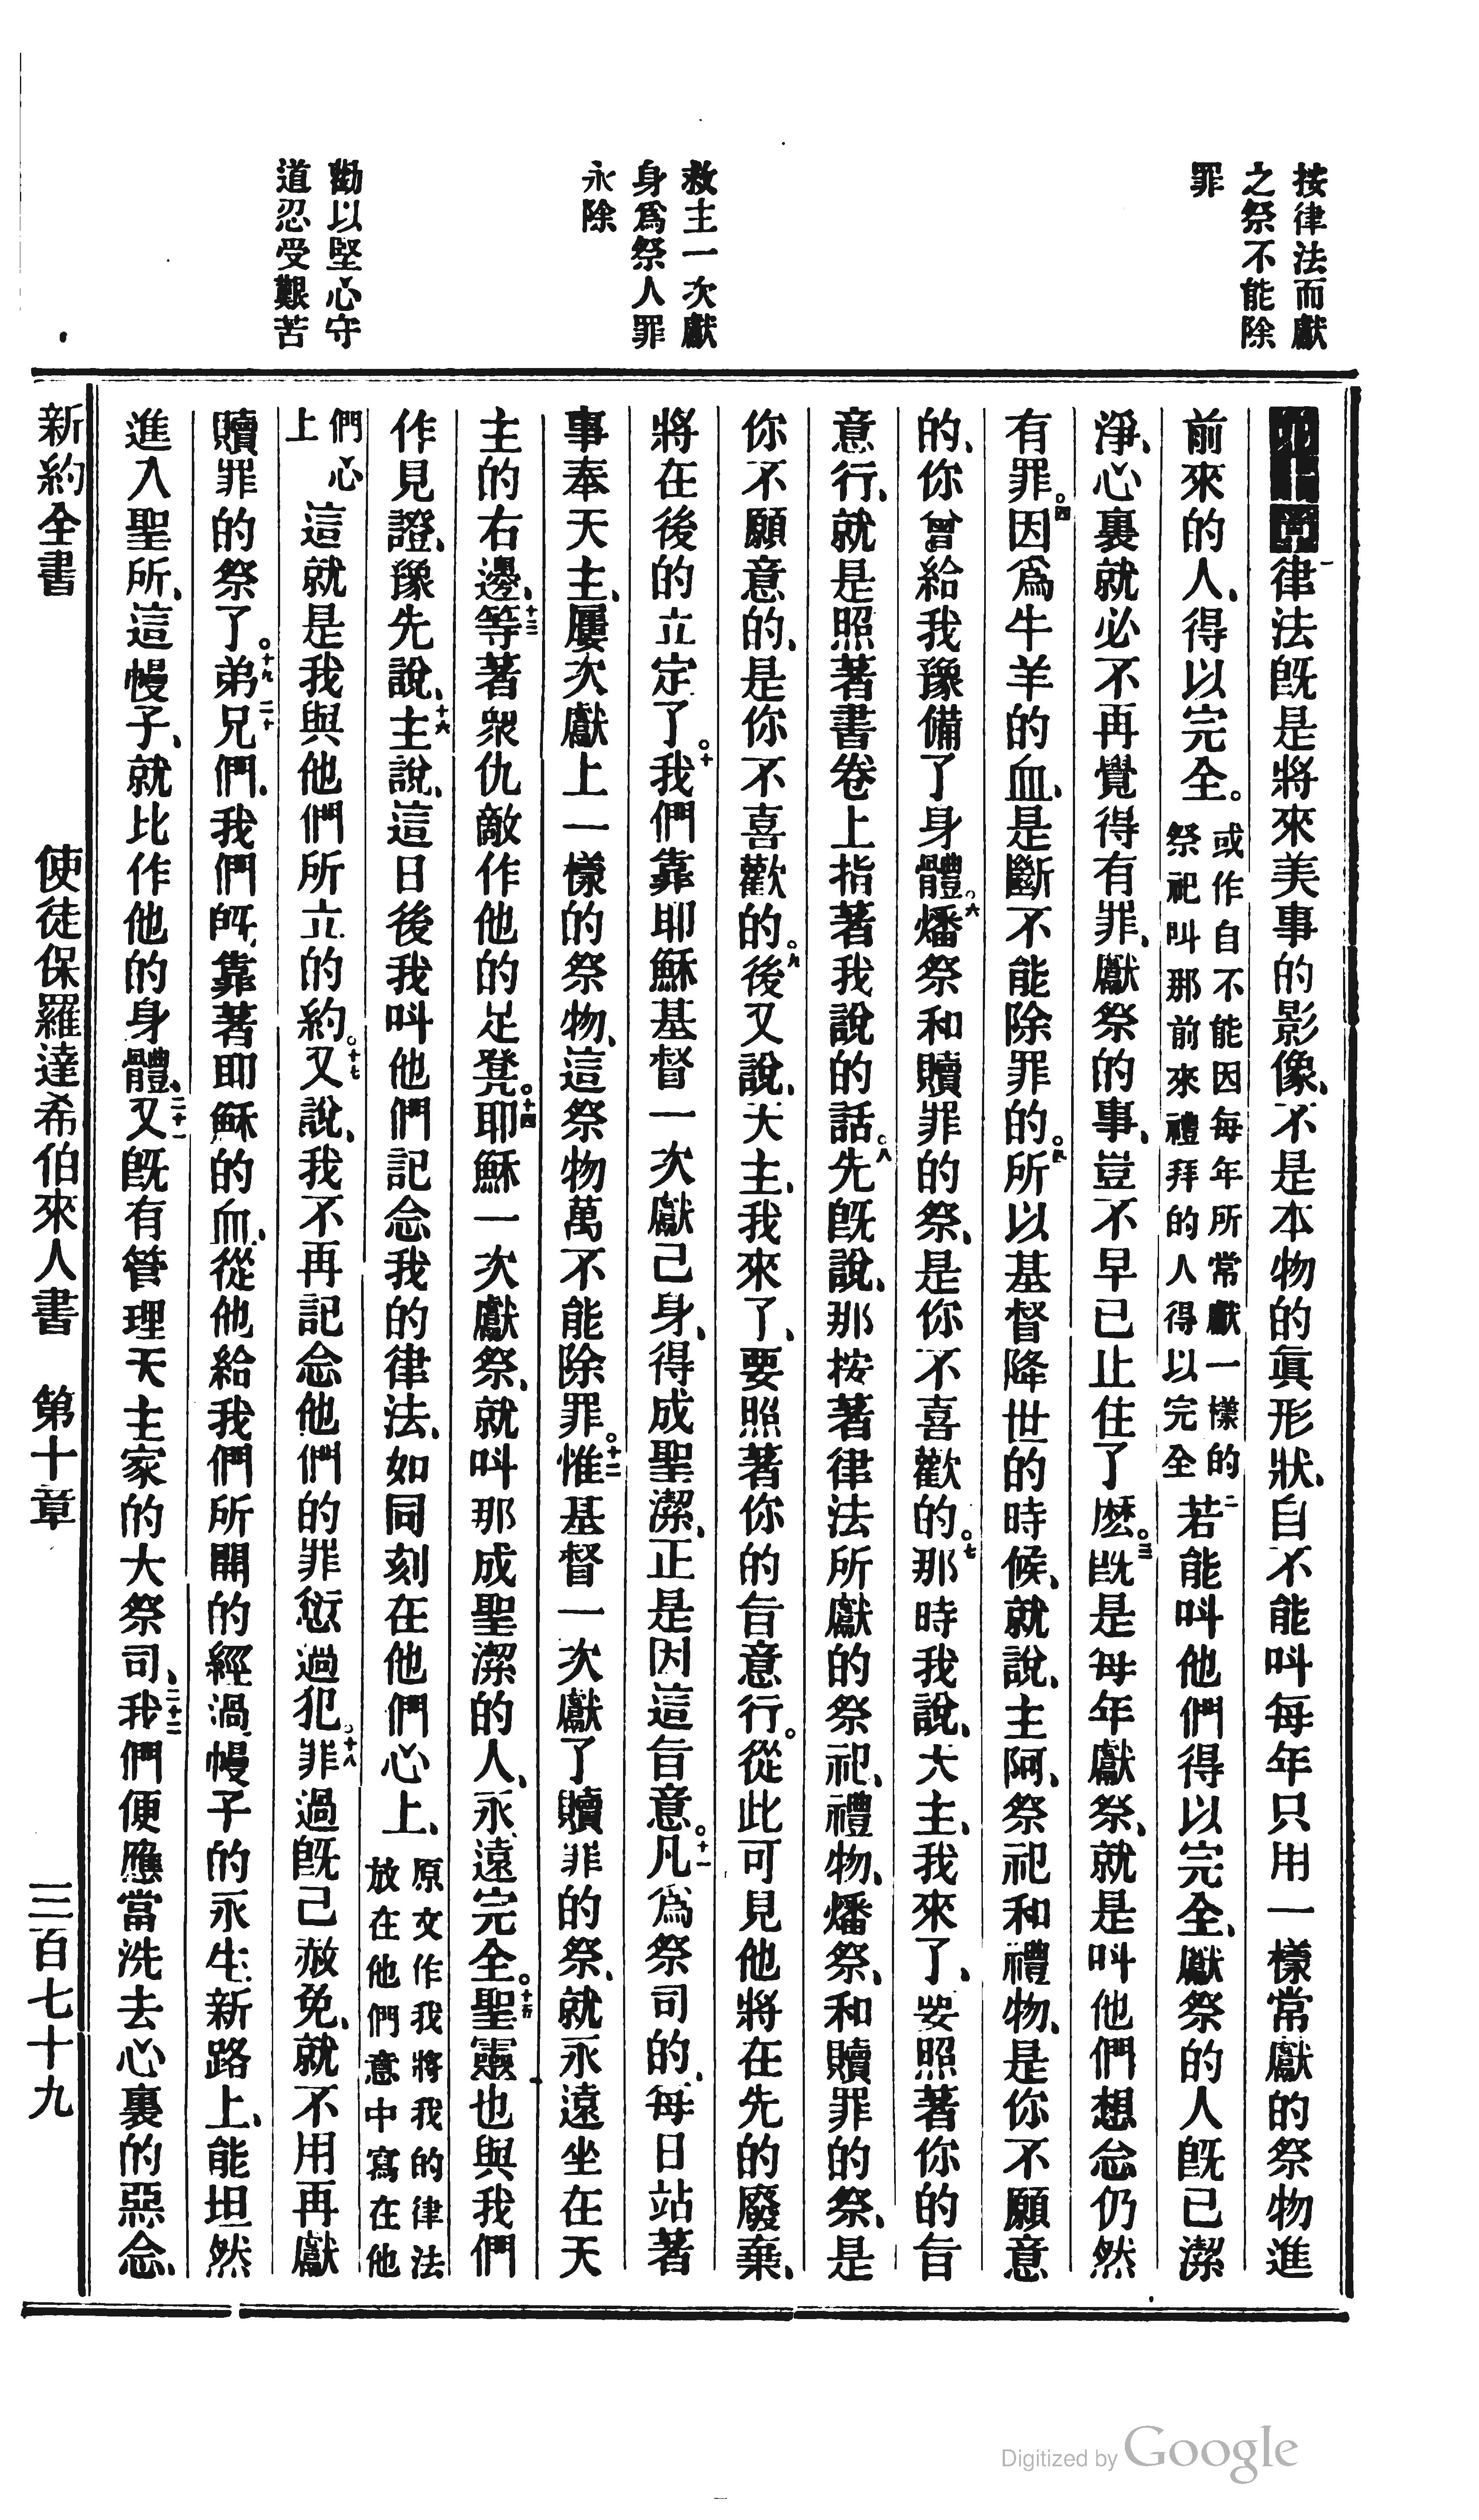 按律法而獻
之祭不能除
罪
救主一次獻
身爲祭人罪
永除
勸以堅心守
道忍受艱苦
一律法旣是將來美事的影像、不是本物的眞形狀、自不能叫每年只用一樣常獻的祭物進
前來的人、得以完全。或作自不能因每年所常獻一樣的祭祀叫那前來禮拜的人得以完全二若能叫他們得以完全、獻祭的人旣已潔
淨、心裏就必不再覺得有罪、獻祭的事、豈不早已止住了麽。三旣是每年獻祭、就是叫他們想念仍然
有罪。四因爲牛羊的血、是斷不能除罪的。五所以基督降世的時候、就說、主阿、祭祀和禮物、是你不願意
的、你曾給我豫備了身體。六燔祭和贖罪的祭、是你不喜歡的。七那時我說、天主、我來了、要照著你的旨
意行、就是照著書卷上指著我說的話。八先旣說、那按著律法所獻的祭祀、禮物、燔祭、和贖罪的祭、是
你不願意的、是你不喜歡的。九後又說、天主、我來了、要照著你的旨意行。從此可見他將在先的廢棄、
將在後的立定了。十我們靠耶穌基督一次獻己身、得成聖潔、正是因這旨意。十一凡爲祭司的、每日站著
事奉天主、屢次獻上一樣的祭物、這祭物萬不能除罪。十二惟基督一次獻了贖罪的祭、就永遠坐在天
主的右邊、十三等著衆仇敵作他的足凳。十四耶穌一次獻祭、就叫那成聖潔的人、永遠完全。十五聖靈也與我們
作見證、豫先說、十六主說、這日後我叫他們記念我的律法、如同刻在他們心上、原文作我將我的律法放在他們意中寫在他
們心上這就是我與他們所立的約。十七又說、我不再記念他們的罪愆過犯。十八罪過旣已赦免、就不用再獻
贖罪的祭了。十九弟兄們、二十我們旣靠著耶穌的血、從他給我們所開的經過幔子的永生新路上、能坦然
進入聖所、這幔子、就比作他的身體、二十一又旣有管理天主家的大祭司、二十二我們便應當洗去心裏的惡念、
新約全書　使徒保羅達希伯來人書　第十章　三百七十九
Digitized by Google